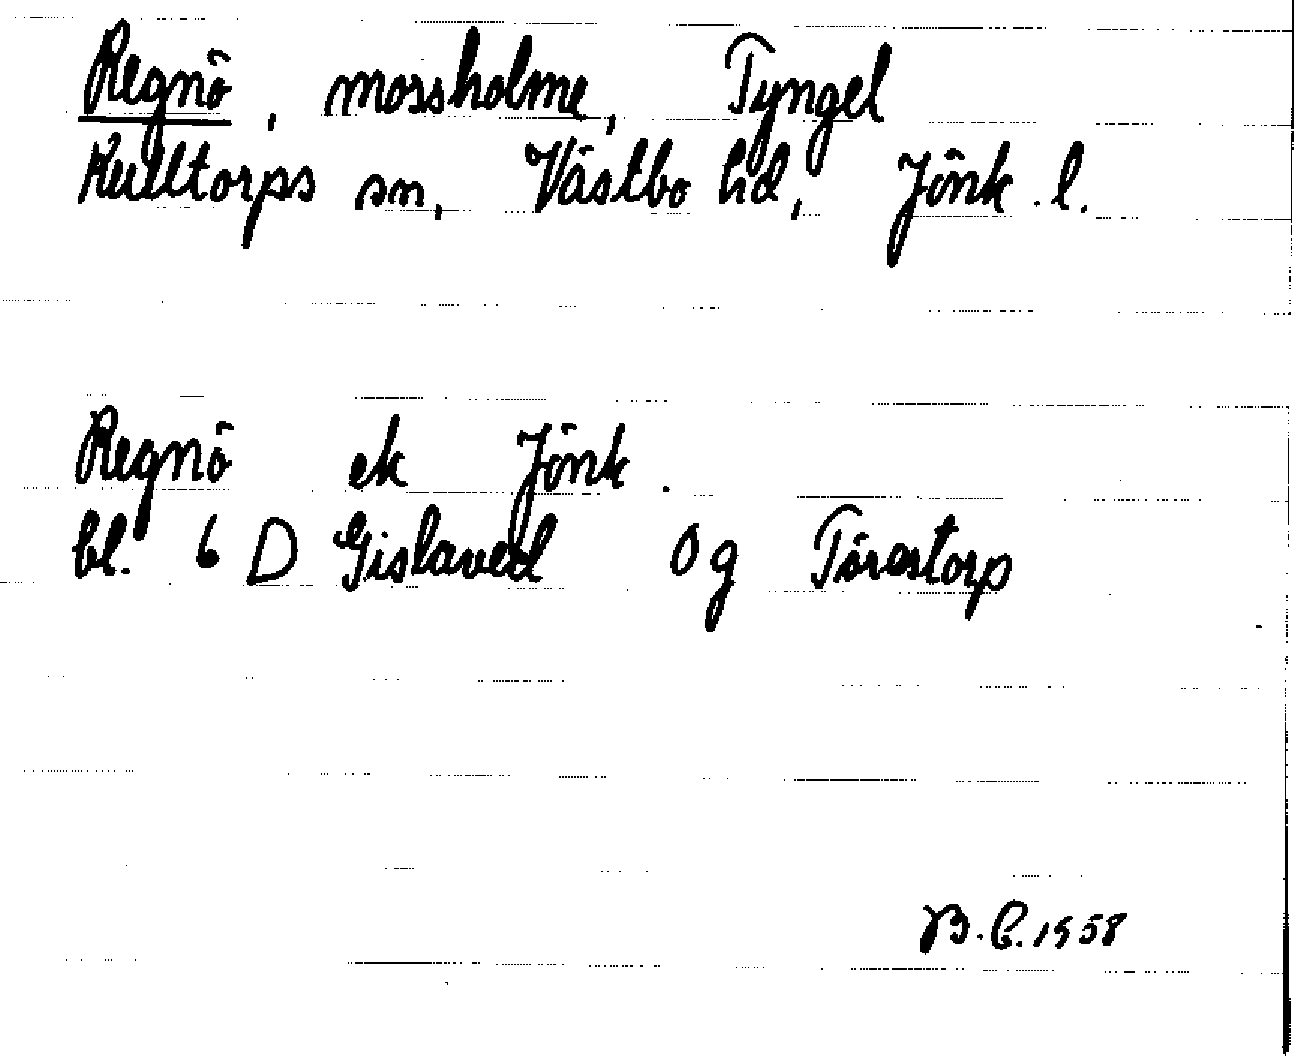 Regnö, mossholme, Tyngel
Kulltorps sn, Västbo hd, Jönk. l.
Regnö ek Jönk.
bl. 6 D Gislaved 0 g Törestorp
B.E. 1958